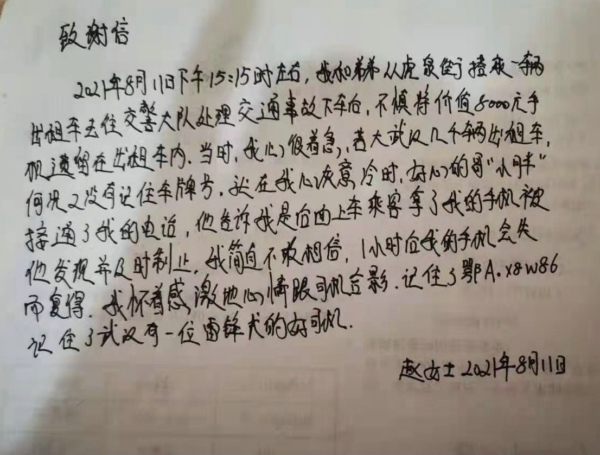 致谢信
2021年8月11日下午15:15时左右，我和弟弟从虎泉街搭乘一辆
出租车去往交警大队处理交通事故下车后，不慎将价值8000元手
机遗留在出租车内。当时，我心很着急，若大武汉几千辆出租车，
何况又没有记住车牌号。就在我心灰意冷时，好心的哥“小胖”
接通了我的电话，他告诉我是后面上车乘客拿了我的手机被
他发现并及时制止，我简直不敢相信，1小时后我的手机会失
而复得。我怀着感激地心情跟司机合影。记住了鄂A.X8W86
记住了武汉有一位雷锋式的好司机。
赵女士2021年8月11日